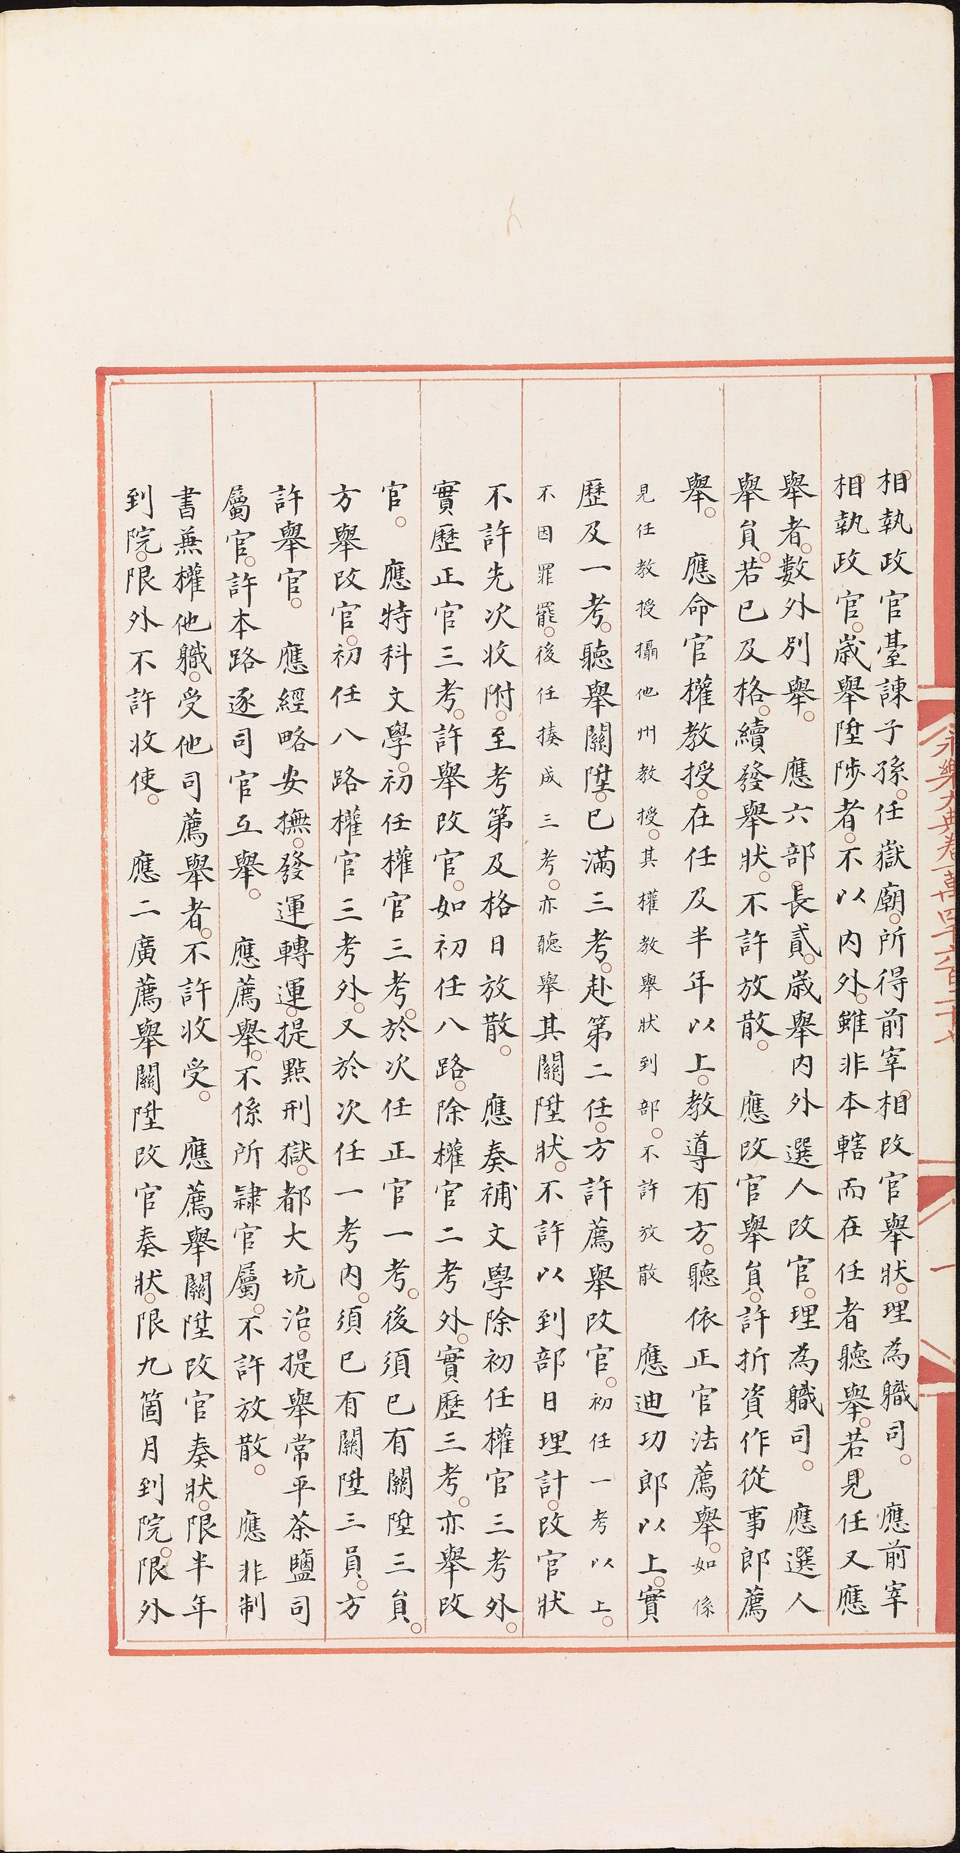 永樂大典卷一萬四千六百二十七
一
相執政官臺諫子孫。任嶽廟。所得前宰相改官舉狀。理為職司。 應前宰
相執政官。歲舉陞陟者。不以內外。雖非本轄而在任者聽舉。若見任又應
舉者。數外別舉。 應六部長貳。歲舉內外選人改官。理為職司。 應選人
舉員。若已及格。續發舉狀。不許放散。 應改官舉員。許折資作從事郎薦
舉。 應命官權教授。在任及半年以上。教導有方。聽依正官法薦舉。如係
見任教授攝他州教授。其權教舉狀到部。不許放散 應迪功郎以上。實
歷及一考。聽舉關陞。已滿三考。赴第二任。方許薦舉改官。初任一考以上。
不因罪罷。後任揍成三考。亦聽舉其關陞狀。不許以到部日理計。改官狀
不許先次收附。至考第及格日放散。 應奏補文學除初任權官三考外。
實歷正官三考。許舉改官。如初任八路。除權官二考外。實歷三考。亦舉改
官。 應特科文學。初任權官三考。於次任正官一考。後須已有關陞三員。
方舉改官。初任八路權官三考外。又於次任一考內。須已有關陞三員。方
許舉官。 應經略安撫。發運轉運。提點刑獄。都大坑冶。提舉常平茶鹽司
屬官。許本路逐司官互舉。 應薦舉。不係所隸官屬。不許放散。 應非制
書兼權他職。受他司薦舉者。不許收受。 應薦舉關陞改官奏狀。限半年
到院。限外不許收使。 應二廣薦舉關陞改官奏狀。限九箇月到院。限外